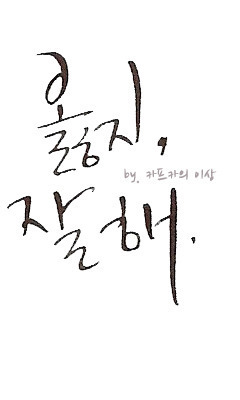 옳지,
by. 카프카의 이상
잘해.